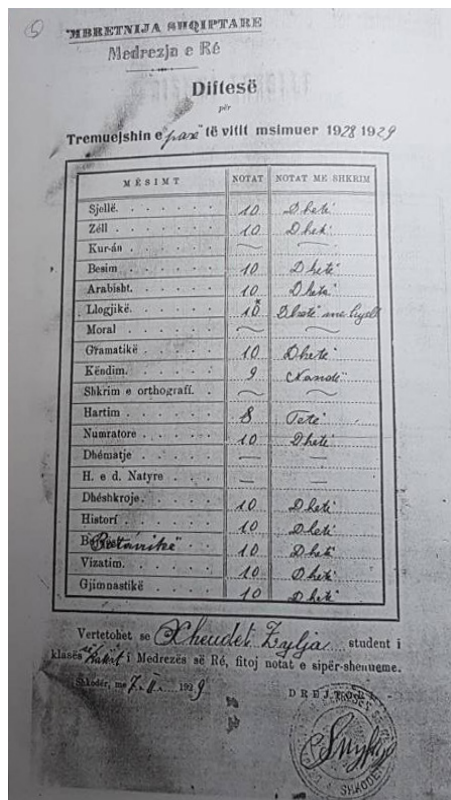 MBRETNIJA SHQIPTARE
Medrezja e Ré
Diftesë
për
Tremuejshin e "parë" të vitit msimuer 1928 1929
MËSIMT NOTAT NOTAT ME SHKRIM
Sjellë. 10 Dhetë
Zéll 10 Dhetë
Kur-án
Besim 10 Dhetë
Arabisht. 10 Dhetë
Llogjikë. 10 Dhetë me
Moral
Gramatikë 10 Dhetë
Këndim. 9 Nandë
Shkrim e orthografí.
Hartim 8 Tetë
Numratore 10 Dhetë
Dhématje — —
H. e d. Natyre — —
Dhéshkroje. 10 Dhetë
Historí 10 Dhetë
Botanikë 10 Dhetë
Vizatim. 10 Dhetë
Gjimnastikë 10 Dhetë
Vertetohet se Xheudet Zylja student i
klasës i Medrezës së Ré, fitoj notat e sipër-shenueme.
Shkodër, me 7.II. 1929
DREJTORI